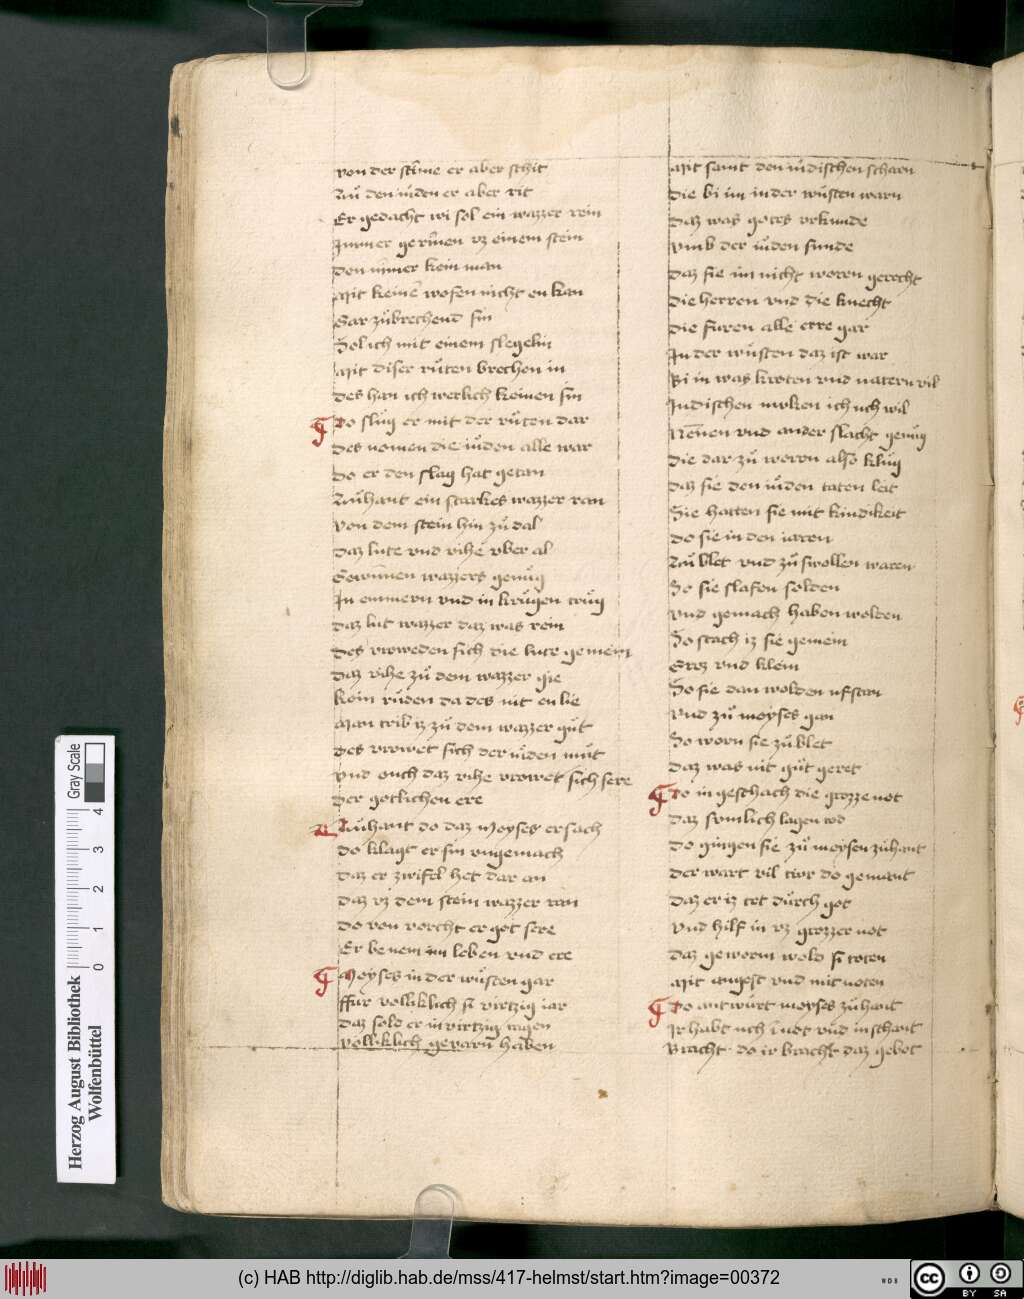 von der stīme er aber schit
Zuͦ den iuden er aber rit
Er gedacht wi sol ein wazzer rein
Immer gerīnen vz einem stein
Den iīmer kein man
Mit keinē wofen nicht en kan
Gar zuͦbrechend sin
Sol ich mit einem slegelin
Mit diser ruͦten brechen in
Des han ich werlich keinen sin
Do sluͦg er mit der ruͦten dar
Des nomen die iuͦden alle war
Do er den slag hat getan
Zuͦhant ein starkes wazzer ran
Von dem stein hin zuͦ dal
Daz lute vnd vihe vber al
Gewūnen wazzers genuͦg
In emmern vnd in kruͦgen truͦg
Daz lut wazzer daz was rein
Des vroweden sich die lute gemein
Daz vihe zuͦ dem wazzer gie
Kein ruͦden da des nit en lie
Man trib iz zuͦ dem wazzer guͦt
Des vrowet sich der iuͦden muͦt
Vnd ouch daz vihe vrowet sich sere
Der gotlichen ere
Zuͦhant do daz Moyses ersach
Do klagt er sin vngemach
Daz er zwifel het dar an
Daz vz dem stein wazzer ran
Do von vorcht er got sere
Er benem im leben vnd ere
Moyses in der wuͦsten gar
Fur volliklich si virtzig iar
Daz sold er in virtzig tagen
Volliklich gevarn haben
Mit samt den iuͦdischen scharn
Die bi im in der wuͦsten warn
Daz was gotes vrkunde
Vmb der iuͦden sunde
Daz sie im nicht woren gerecht
Die herren vnd die knecht
Die furen alle erre gar
In der wuͦsten daz ist war
Bi in was kroten vnd natern vil
Indischen mvken ich uch wil
Nēnen vnd ander slacht genuͦg
Die dar zuͦ woren also kluͦg
Daz sie den iuͦden taten leit
Sie hatten sie mit kundikeit
Do sie in den iaren
Zuͦ blet vnd zuͦ swollen waren
So sie slafen solden
Vnd gemach haben wolden
So stach iz sie gemein
Groz vnd klein
So sie dan wolden ufstan
Vnd zuͦ moyses gan
So worn sie zuͦ blet
Daz was nit guͦt geret
Do in geschach die grozze not
Daz sumlich lagen tod
Do gingen sie zuͦ moysen zuͦhant
Der wart vil tivr do gemant
Daz er iz tet durch got
Vnd hilf in vz grozzer not
Daz geworm wold si toten
Mit angest vnd mit noten
Do antwurt moyses zuͦhant
Ir habt uch ī not vnd in schant
Bracht · do ir bracht daz gebot
Herzog August Bibliothek
Wolfenbüttel
Gray Scale
0 1 2 3 4
(c) HAB http://diglib.hab.de/mss/417-helmst/start.htm?image=00372
WDB
cc BY SA